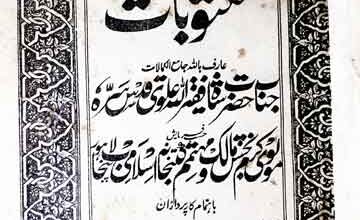 مکتوبات
عارف باللہ جامع الکمالات
جناب حضرت شاہ فقیر اللہ علوی قدس سرہ
حسب فرمایش
مولوی کرم بخش مالک و مہتمم کتبخانہ اسلامی پنجاب لاہور
باہتمام کارپردازان